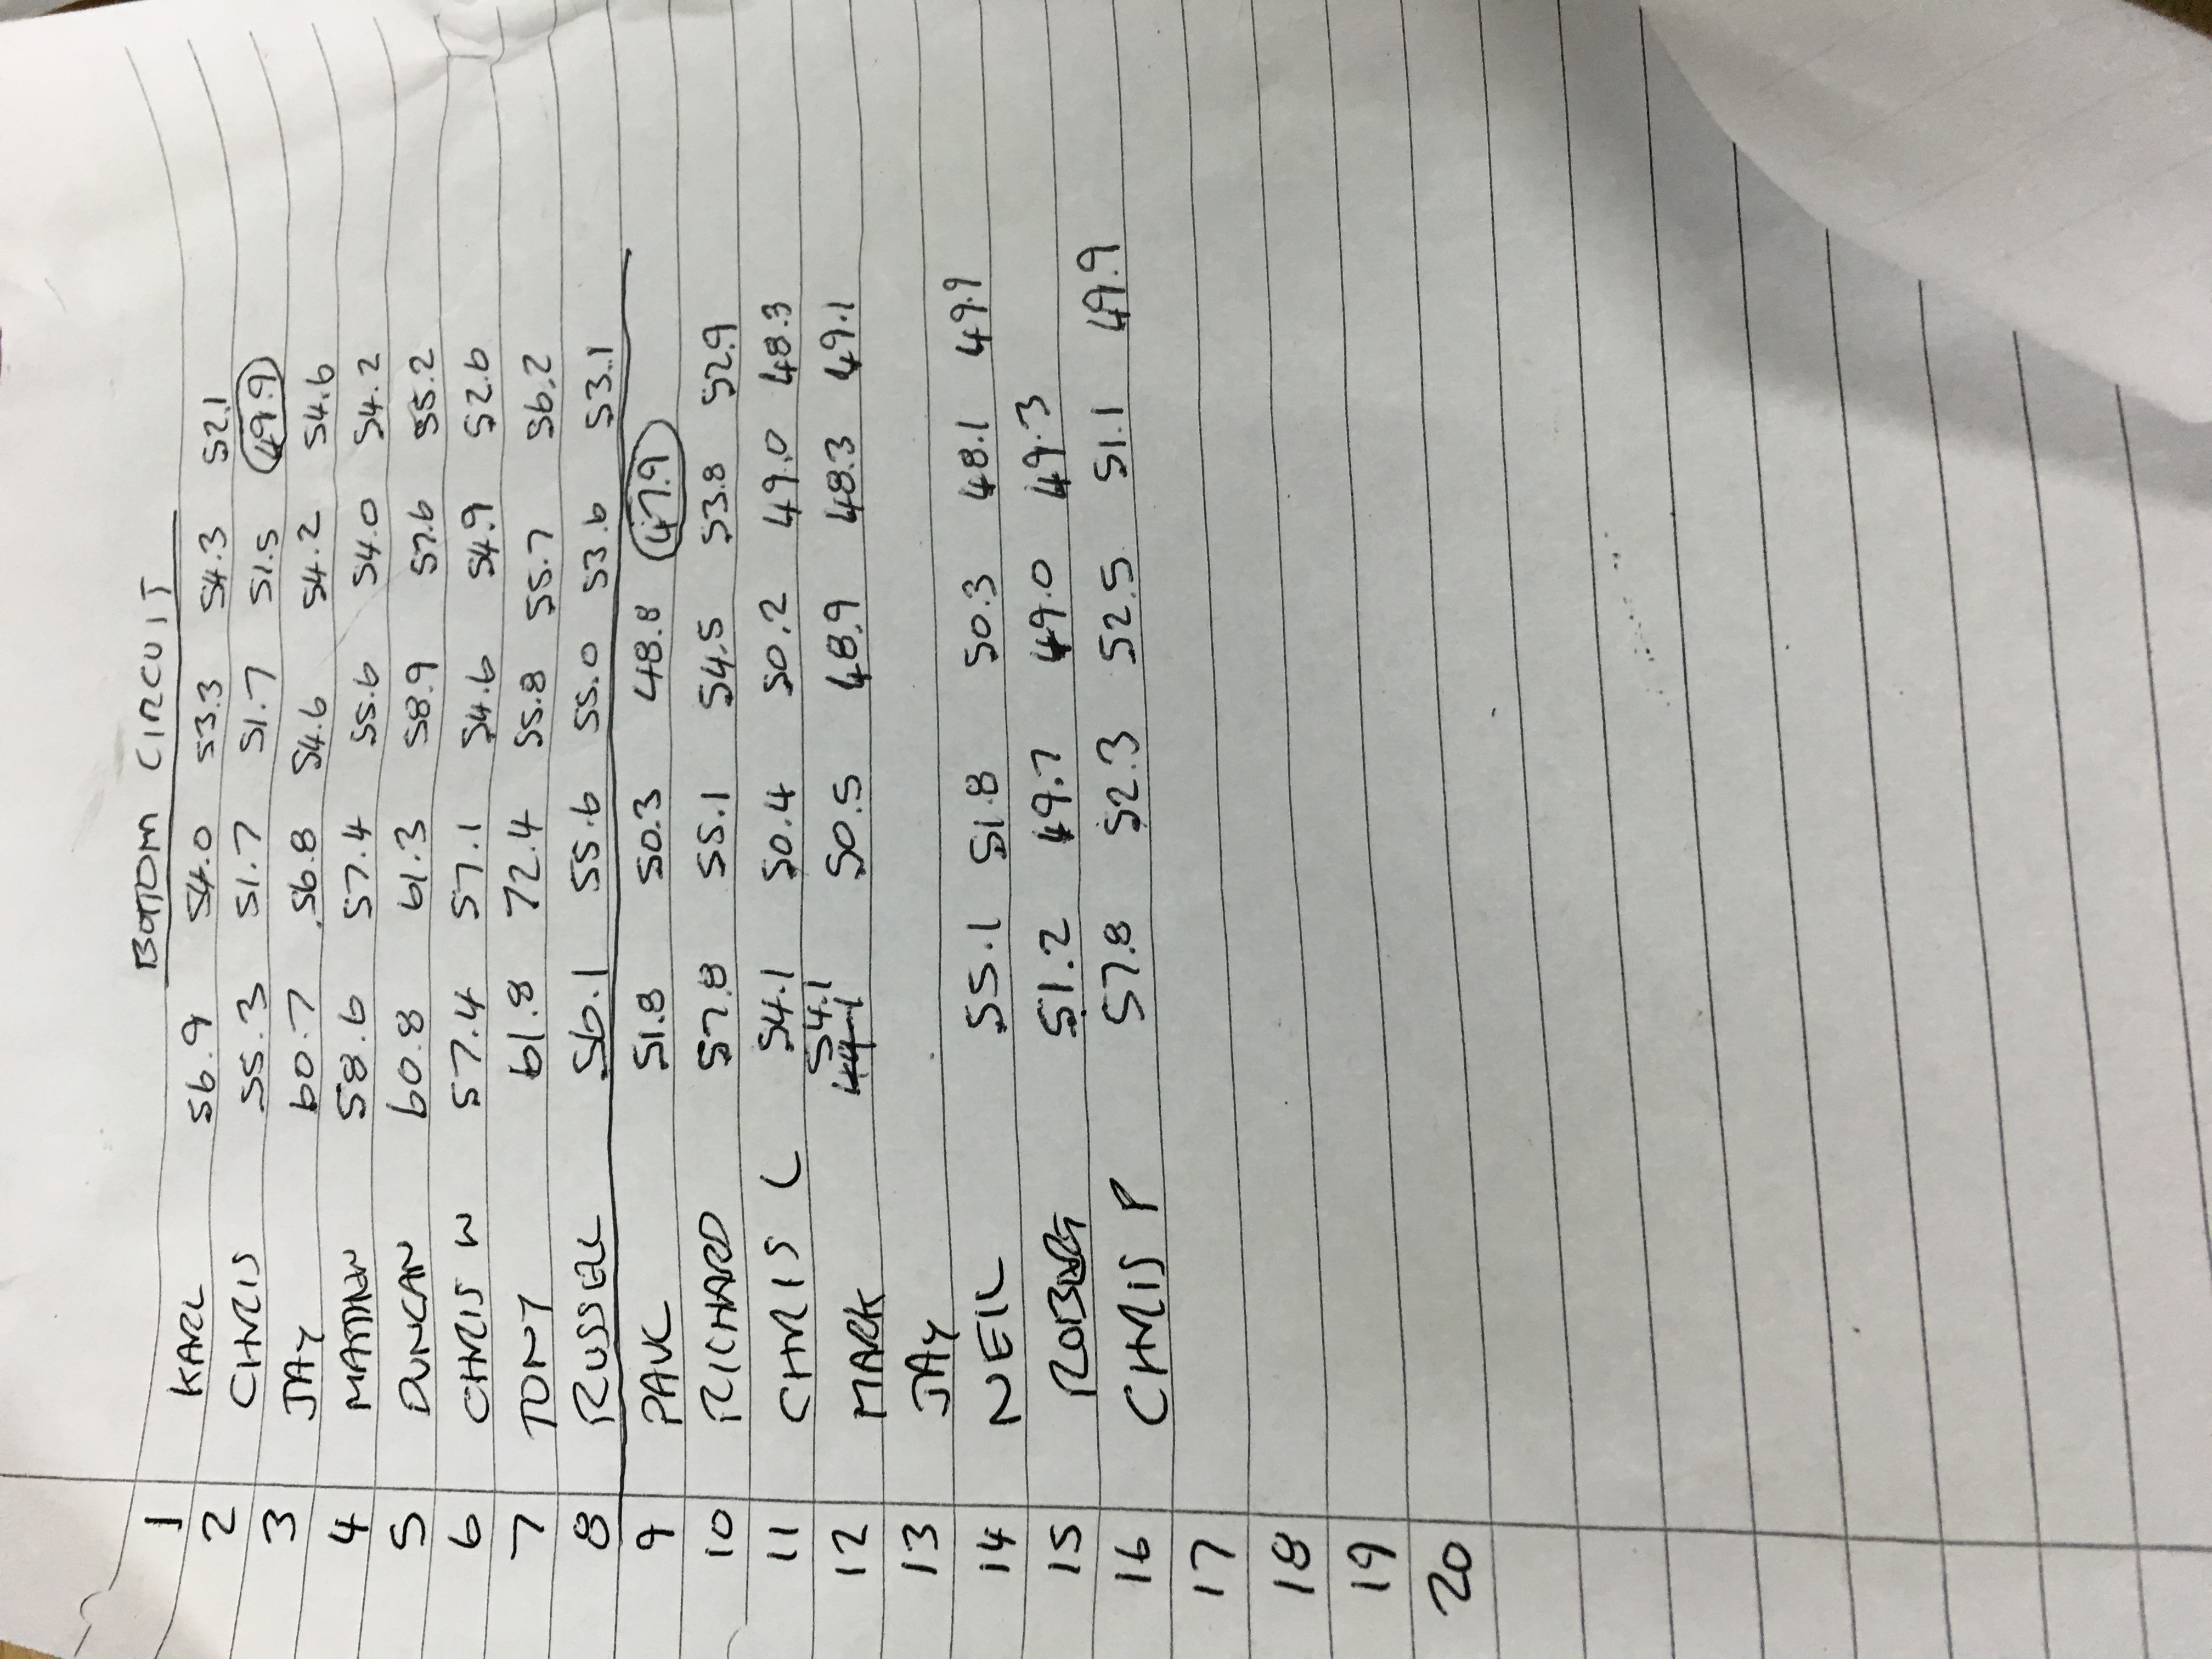 BOTTOM CIRCUIT
1 KARL 56.9 54.0 53.3 54.3 52.1
2 CHRIS 55.3 51.7 51.7 51.5 49.9
3 JAY 60.7 56.8 54.6 54.2 54.6
4 58.6 57.4 55.6 54.0 54.2
5 DUNCAN 60.8 61.3 58.9 57.6 55.2
6 CHRIS W 57.4 57.1 54.6 54.9 52.6
7 TONY 61.8 72.4 55.8 55.7 56.2
8 RUSSELL 56.1 55.6 55.0 53.6 53.1
9 PAUL 51.8 50.3 48.8 47.9
10 RICHARD 57.8 55.1 54.5 53.8 52.9
11 CHRIS L 54.1 50.4 50.2 49.0 48.3
12 MARK 54.1 50.5 48.9 48.3 49.1
13 JAY
14 NEIL 55.1 51.8 50.3 48.1 49.9
15 51.2 49.7 49.0 49.3
16 CHRIS P 57.8 52.3 52.5 51.1 49.9
17
18
19
20